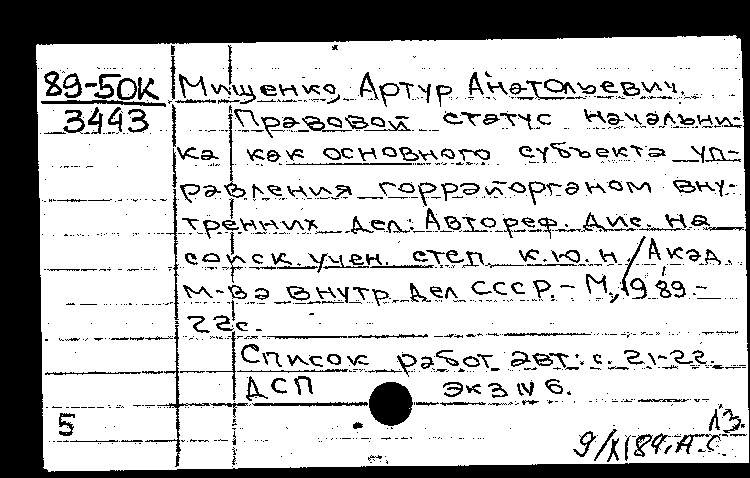 89-50К Мищенко, Артур Анатольевич.
3443 Правовой статус начальни-
ка как основного субъекта уп-
равления горрайорганом вну-
тренних дел: Автореф. дис. на
соиск. учен. степ. к.ю.н./Акад.
м-ва внутр дел СССР. - М., 1989. -
22с.
Список работ авт.: с. 21-22.
ДСП экз № 6.
5
9/XI 89. А.С.